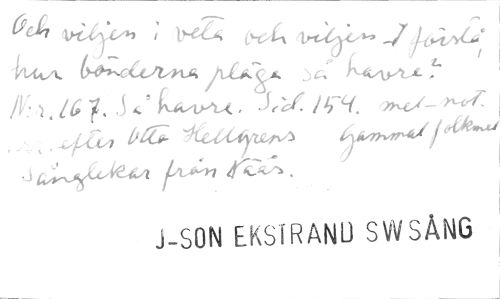 Och viljen i veta och viljen I förstå,
hur bönderna pläga så havre?
N:r. 167. Så havre. Sid. 154. mel-not.
efter Otto Hellgrens Gammal folkmel
Sånglekar från Nääs.
J-SON EKSTRAND SWSÅNG